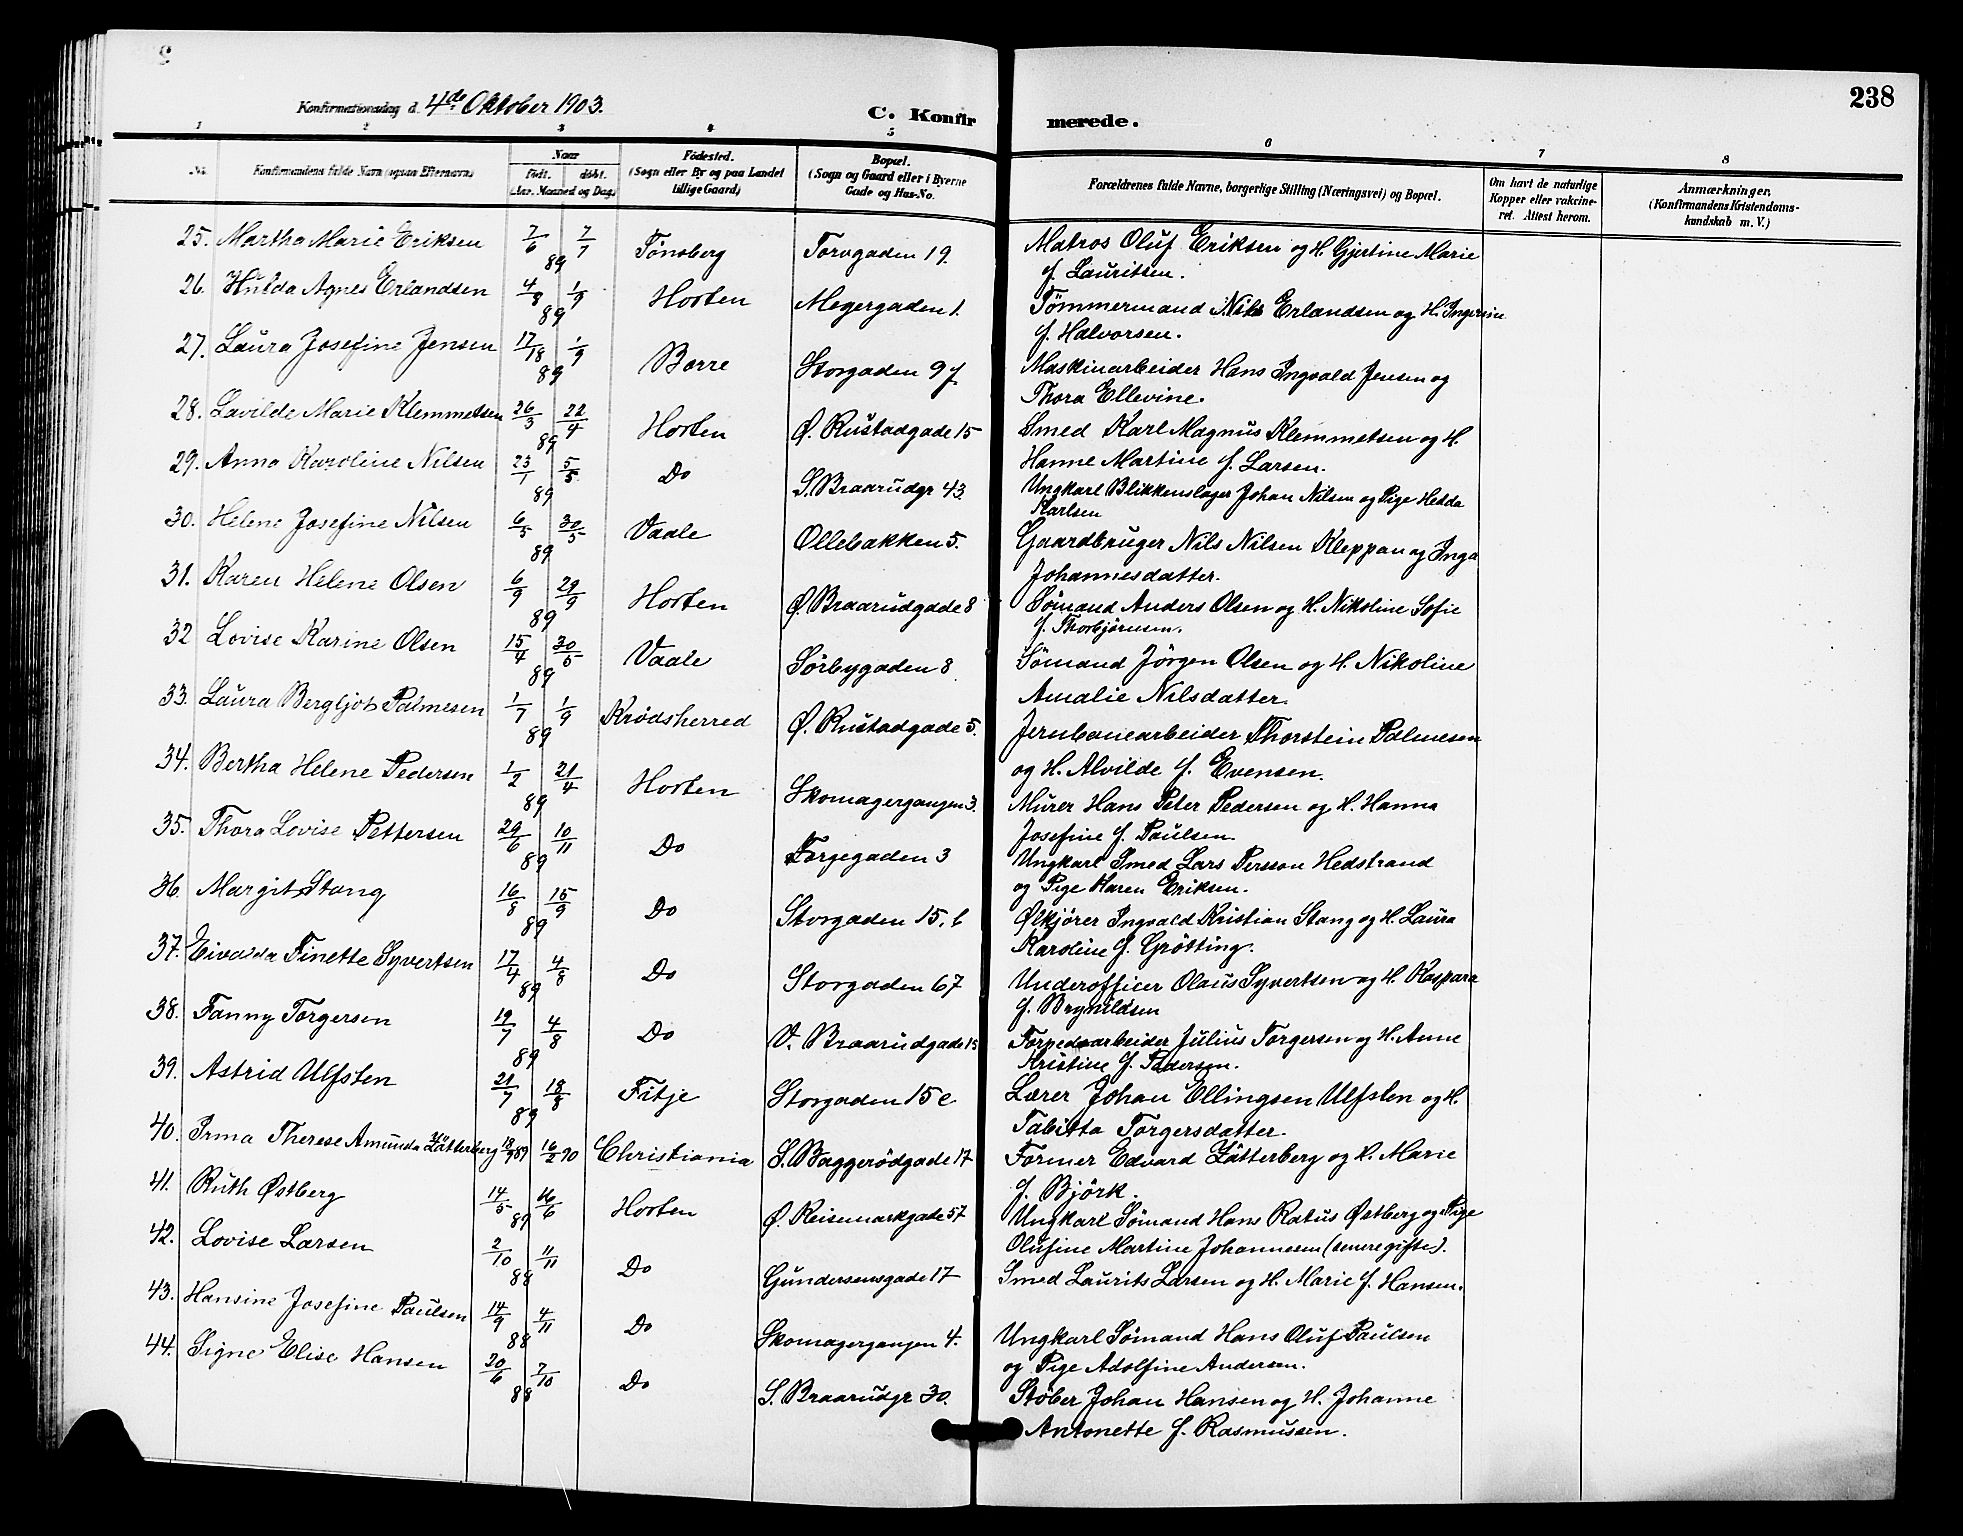 238
Konfirmationsdag d. 4de Oktober 1903.
C. Konfirmerede.
1 2 3 4 5 6 7 8
No. Konfirmandens fulde Navn (ogsaa Efternavn) Naar født. døbt. (Aar, Maaned og Dag) Födested. (Sogn eller By og paa Landet tillige Gaard) Bopæl. (Sogn og Gaard eller i Byerne Gade og Hus-No. Forældrenes fulde Navne, borgerlige Stilling (Næringsvei) og Bopæl. Om havt de naturlige Kopper eller vakcineret. Attest herom. Anmærkninger. (Konfirmandens Kristendomskundskab m. V.)
25. Martha Marie Eriksen 7/6 89 7/7 Tönsberg Torvgaden 19. Matros Oluf Eriksen og H. Gjertine Marie
f. Lauritsen.
26. Hulda Agnes Erlandsen 4/8 89 1/9 Horten Megergaden 1. Tömmermand Nils Erlandsen og H. Ingerine
f. Halvorsen.
27. Laura Josefine Jensen 17/18 89 1/9 Borre Storgaden 97 Maskinarbeider Hans Ingvald Jensen og
Thora Ellevine.
28. Lavilde Marie Klemmetsen 26/3 89 22/4 Horten Ø. Rustadgade 15 Smed Karl Magnus Klemmetsen og H.
Hanne Martine f. Larsen.
29. Anna Karoline Nilsen 23/1 89 5/5 Do S. Braarudgr 43. Ungkarl Blikkenslager Johan Nilsen og Pige Hedda
Karlsen
30. Helene Josefine Nilsen 6/5 89 30/5 Vaale Ollebakken 5. Gaardbruger Nils Nilsen Kleppan og Inga
Johannesdatter.
31. Karen Helene Olsen 6/9 89 29/9 Horten Ø. Braarudgade 8 Sömand Anders Olsen og H. Nikoline Sofie
f. Thorbjörnsen.
32 Lovise Karine Olsen 15/4 89 30/5 Vaale Sörbygaden 8. Sömand Jörgen Olsen og H. Nikoline
Amalie Nilsdatter.
33. Laura Bergljot Palmesen 1/7 89 1/9 Krödsherred Ø. Rustadgade 5. Jernbanearbeider Thorstein Palmesen
og H. Alvilde f. Evensen.
34. Bertha Helene Pedersen 1/2 89 21/4 Horten Skomagergangen 3. Murer Hans Peter Pedersen og H. Hanna
Josefine f. Paulsen.
35. Thora Lovise Pettersen 29/6 89 10/11 Do Torgegaden 3 Ungkarl Smed Lars Persson Hedstrand
og Pige Karen Eriksen.
36. Margit Stang 16/8 89 15/9 Do Storgaden 15. b Ølkjörer Ingvald Kristian Stang og H. Laura
Karoline f. Grötting.
37. Eivalda Finette Syvertsen 17/4 89 4/8 Do Storgaden 67 Underofficer Olaus Syvertsen og H. Kaspara
f. Brynildsen
38. Fanny Torgersen 19/7 89 4/8 Do V. Braarudgade 15 Torpedoarbeider Julius Torgersen og H. Anne
Kristine f. Pedersen.
39. Astrid Ulfsten 21/7 89 18/8 Fitje Storgaden 15 c Lærer Johan Ellingsen Ulfsten og H.
Tabitta Torgersdatter.
40. Irma Therese Amunda Zätterberg 18/9 89 16/2 90 Christiania S. Baggerödgade 17 Former Edvard Zätterberg og H. Marie
f. Björk.
41. Ruth Østberg 14/5 89 16/6 Horten Ø. Keisemarkgade 57 Ungkarl Sömand Hans Ratus Østberg og Pige
Olufine Martine Johannesen (senere gifte).
42. Lovise Larsen 2/10 88 11/11 Do Gundersensgade 17 Smed Laurits Larsen og H. Marie f. Hansen.
43. Hansine Josefine Paulsen 14/9 88 4/11 Do Skomagergangen 4. Ungkarl Sömand Hans Oluf Paulsen
og Pige Adolfine Andersen.
44. Signe Elise Hansen 20/6 88 7/10 Do S. Braarudgr 30. Støber Johan Hansen og H. Johanne
Antonette f. Rasmussen.